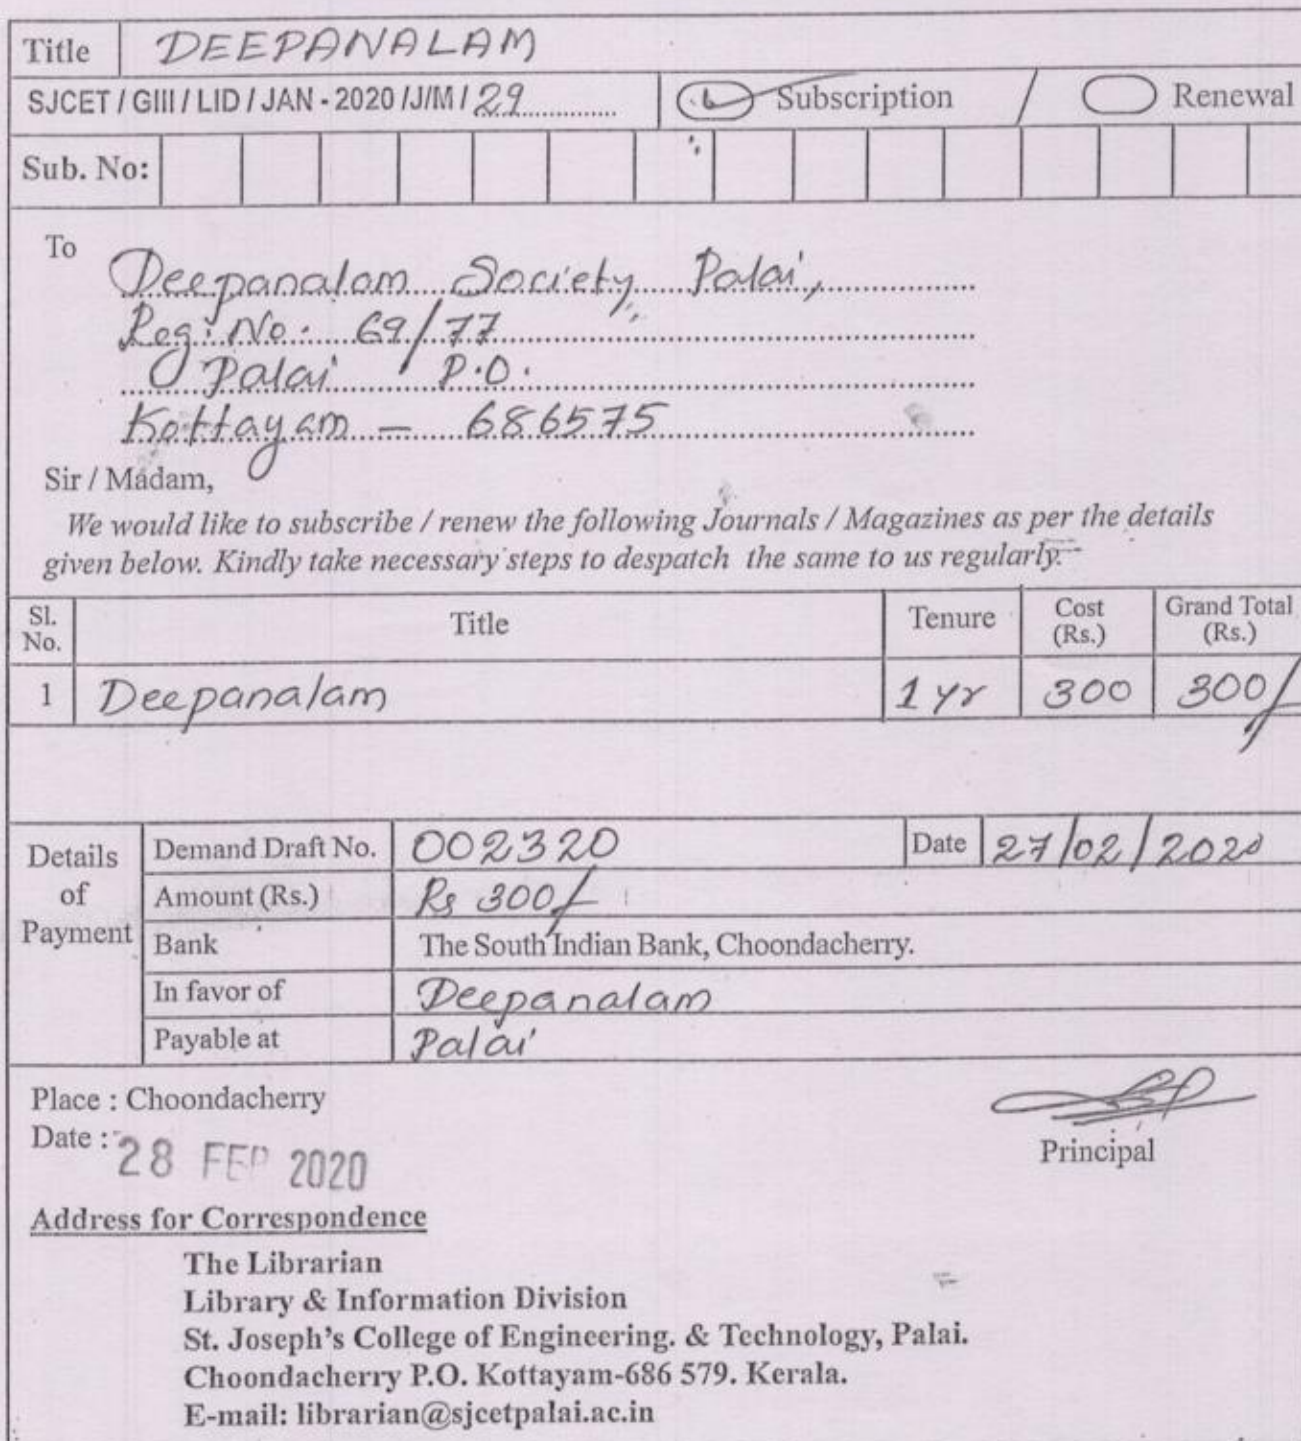 Title DEEPANALAM
SJCET / GIII / LID / JAN - 2020 /J/M / 29 Subscription / Renewal
Sub. No:
To
Deepanalam Society, Palai,
Reg: No: 69/77
Palai P.O.
Kottayam – 686575
Sir / Madam,
We would like to subscribe / renew the following Journals / Magazines as per the details
given below. Kindly take necessary steps to despatch the same to us regularly.
Sl. No. Title Tenure Cost (Rs.) Grand Total (Rs.)
1 Deepanalam 1 yr 300 300/-
Details of Payment
Demand Draft No. 002320 Date 27/02/2020
Amount (Rs.) Rs 300/-
Bank The South Indian Bank, Choondacherry.
In favor of Deepanalam
Payable at Palai
Place : Choondacherry
Date : 28 FEB 2020
Principal
Address for Correspondence
The Librarian
Library & Information Division
St. Joseph's College of Engineering. & Technology, Palai.
Choondacherry P.O. Kottayam-686 579. Kerala.
E-mail: librarian@sjcetpalai.ac.in